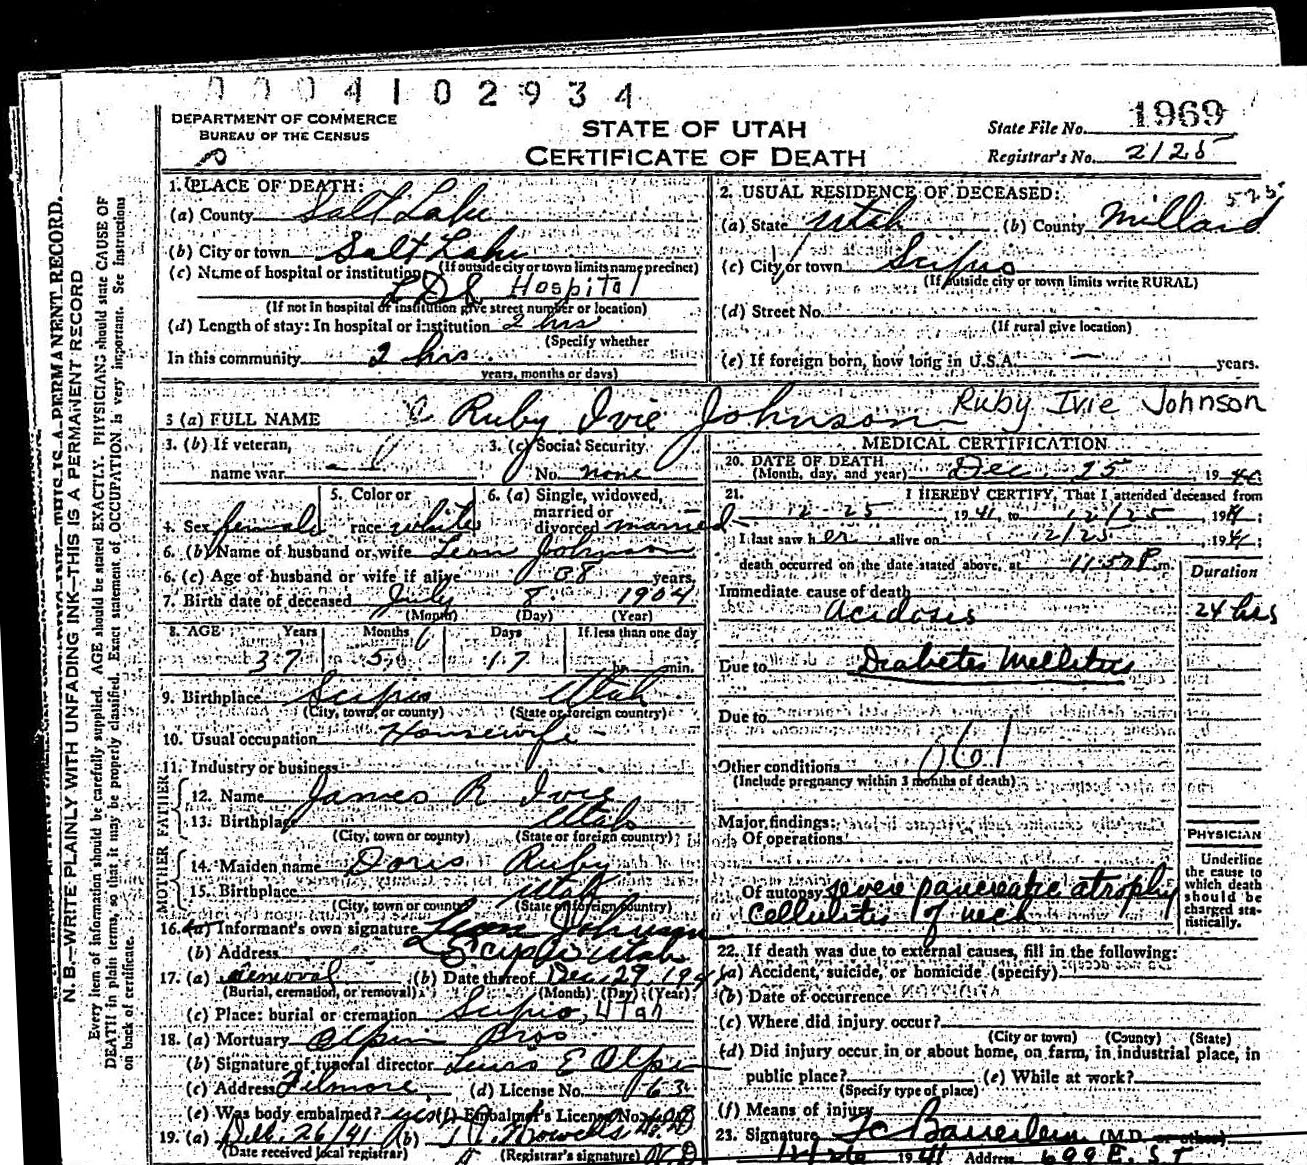 0004102934
DEPARTMENT OF COMMERCE
BUREAU OF THE CENSUS
STATE OF UTAH
CERTIFICATE OF DEATH
State File No. 1969
Registrar's No. 2125
N. B.—WRITE PLAINLY WITH UNFADING INK—THIS IS A PERMANENT RECORD
Every item of information should be carefully supplied. AGE should be stated EXACTLY. PHYSICIANS should state CAUSE OF
DEATH in plain terms, so that it may be properly classified. Exact statement of OCCUPATION is very important. See Instructions
on back of certificate.
1. PLACE OF DEATH:
(a) County Salt Lake
(b) City or town Salt Lake
(If outside city or town limits name precinct)
(c) Name of hospital or institution
LDS Hospital
(If not in hospital or institution give street number or location)
(d) Length of stay: In hospital or institution 2 hrs
(Specify whether
In this community 2 hrs
years, months or days)
2. USUAL RESIDENCE OF DECEASED:
(a) State Utah (b) County Millard
(c) City or town Scipio
(If outside city or town limits write RURAL)
(d) Street No.
(If rural give location)
(e) If foreign born, how long in U.S.A. — years.
3 (a) FULL NAME Ruby Ivie Johnson Ruby Ivie Johnson
3. (b) If veteran,
name war —
3. (c) Social Security
No. none
4. Sex female
5. Color or
race white
6. (a) Single, widowed,
married or
divorced married
6. (b) Name of husband or wife Leon Johnson
6. (c) Age of husband or wife if alive 38 years.
7. Birth date of deceased July 8 1904
(Month) (Day) (Year)
8. AGE Years Months Days If less than one day
37 5 17 hr. min.
9. Birthplace Scipio Utah
(City, town, or county) (State or foreign country)
10. Usual occupation Housewife
11. Industry or business
FATHER
12. Name James R Ivie
13. Birthplace Utah
(City, town or county) (State or foreign country)
MOTHER
14. Maiden name Doris Ruby
15. Birthplace Utah
(City, town or county) (State or foreign country)
16. (a) Informant's own signature Leon Johnson
(b) Address Scipio Utah
17. (a) Removal (b) Date thereof Dec 29, 1941
(Burial, cremation, or removal) (Month) (Day) (Year)
(c) Place: burial or cremation Scipio, Utah
18. (a) Mortuary Olpin Bros
(b) Signature of funeral director
(c) Address Filmore (d) License No. 63
(e) Was body embalmed? yes (f) Embalmer's License No.
19. (a) Dec. 26/41 (b)
(Date received local registrar) (Registrar's signature)
MEDICAL CERTIFICATION
20. DATE OF DEATH
(Month, day, and year) Dec 25, 19
21. I HEREBY CERTIFY, That I attended deceased from
12-25, 1941, to 12/25, 1941;
I last saw her alive on 12/25, 1941;
death occurred on the date stated above, at 11:50 P. m.
Duration
Immediate cause of death
Acidosis 24 hrs
Due to Diabetes Mellitus
Due to
061
Other conditions
(Include pregnancy within 3 months of death)
Major findings:
Of operations
Of autopsy severe pancreatic atrophy
Cellulitis of neck
PHYSICIAN
Underline
the cause to
which death
should be
charged sta-
tistically.
22. If death was due to external causes, fill in the following:
(a) Accident, suicide, or homicide (specify)
(b) Date of occurrence
(c) Where did injury occur?
(City or town) (County) (State)
(d) Did injury occur in or about home, on farm, in industrial place, in
public place? (e) While at work?
(Specify type of place)
(f) Means of injury
23. Signature (M.D. or other)
12/26 1941 Address 699 E. S T